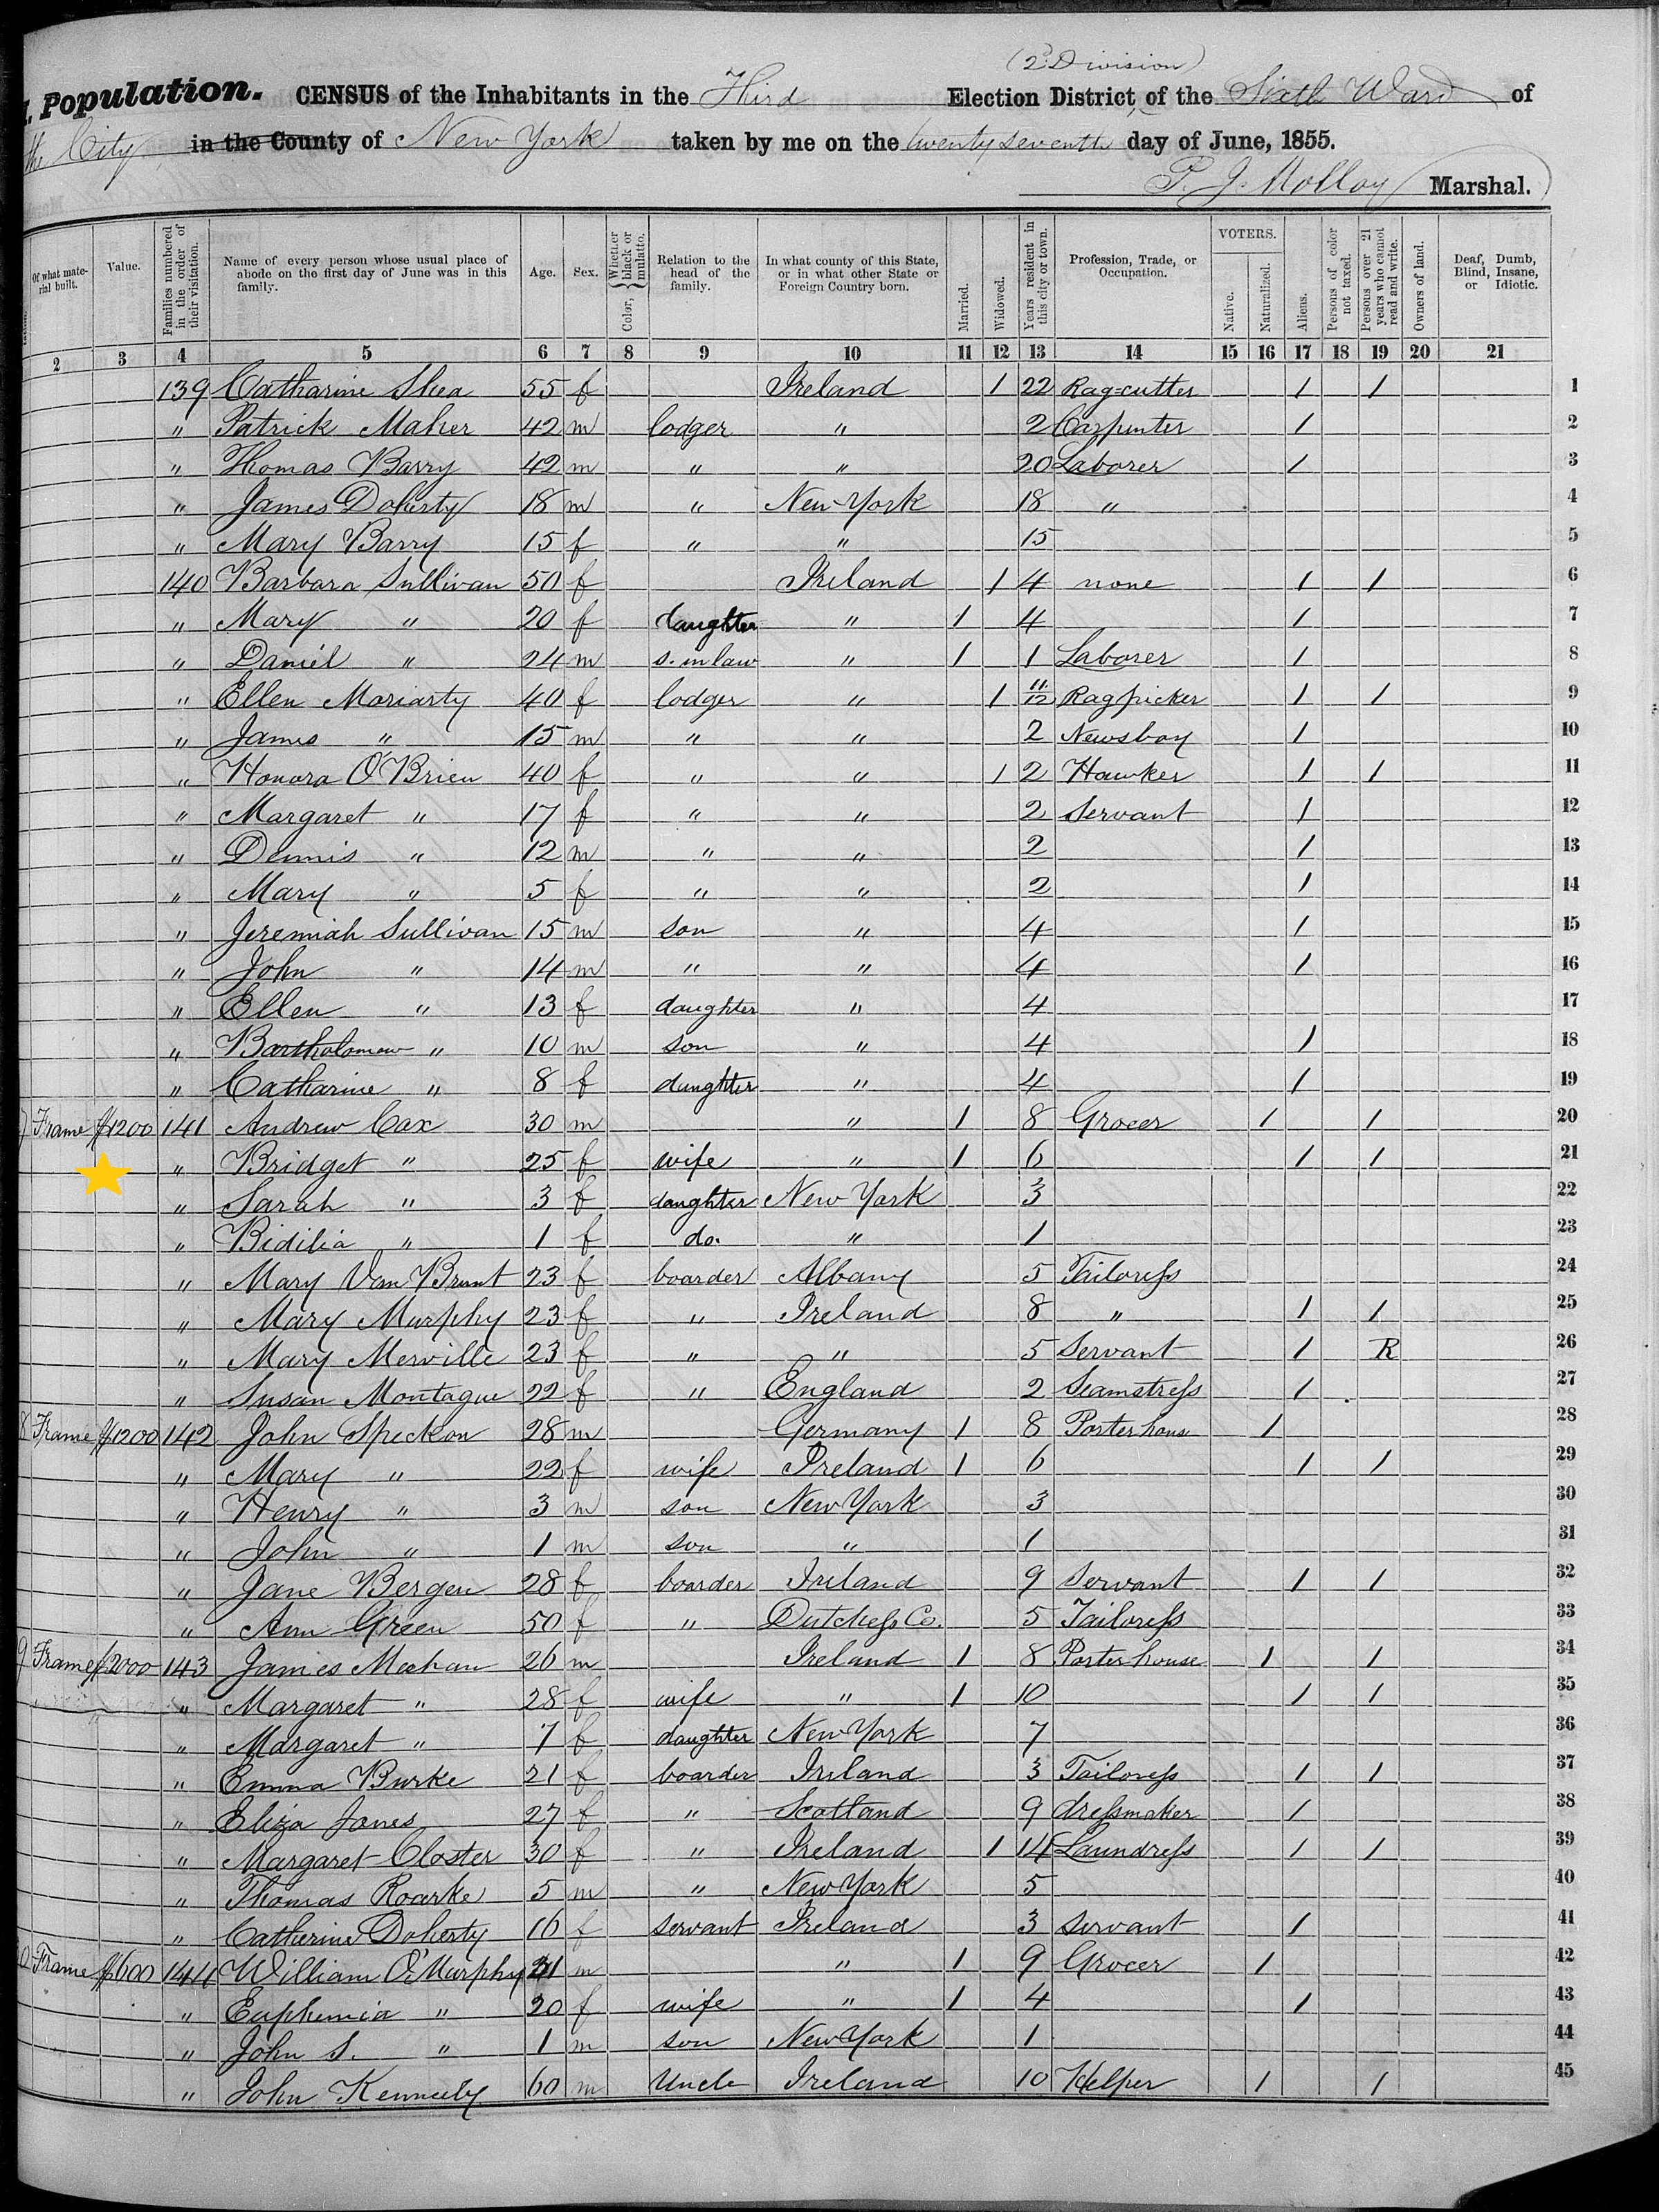 (2d Division)
I. Population. CENSUS of the Inhabitants in the Third Election District, of the Sixth Ward of
the City in the County of New York taken by me on the twenty seventh day of June, 1855.
P. J. Molloy Marshal.
Of what material built. Value. Families numbered in the order of their visitation. Name of every person whose usual place of abode on the first day of June was in this family. Age. Sex. Color, Whether black or mulatto. Relation to the head of the family. In what county of this State, or in what other State or Foreign Country born. Married. Widowed. Years resident in this city or town. Profession, Trade, or Occupation. VOTERS. Native. Naturalized. Aliens. Persons of color not taxed. Persons over 21 years who cannot read and write. Owners of land. Deaf, Dumb, Blind, Insane, or Idiotic.
2 3 4 5 6 7 8 9 10 11 12 13 14 15 16 17 18 19 20 21
139 Catharine Shea 55 f Ireland 1 22 Rag-cutter 1 1 1
" Patrick Maher 42 m lodger " 2 Carpenter 1 2
" Thomas Barry 42 m " " 20 Laborer 1 3
" James Doherty 18 m " New York 18 " 4
" Mary Barry 15 f " " 15 5
140 Barbara Sullivan 50 f Ireland 1 4 none 1 1 6
" Mary " 20 f daughter " 1 4 1 7
" Daniel " 24 m s. in law " 1 1 Laborer 1 8
" Ellen Moriarty 40 f lodger " 1 11/12 Ragpicker 1 1 9
" James " 15 m " " 2 Newsboy 1 10
" Honora O'Brien 40 f " " 1 2 Hawker 1 1 11
" Margaret " 17 f " " 2 Servant 1 12
" Dennis " 12 m " " 2 1 13
" Mary " 5 f " " 2 1 14
" Jeremiah Sullivan 15 m son " 4 1 15
" John " 14 m " " 4 1 16
" Ellen " 13 f daughter " 4 17
" Bartholomew " 10 m son " 4 1 18
" Catharine " 8 f daughter " 4 1 19
7 Frame $1200 141 Andrew Cax 30 m " 1 8 Grocer 1 1 20
" Bridget " 25 f wife " 1 6 1 1 21
" Sarah " 3 f daughter New York 3 22
" Bidilia " 1 f do. " 1 23
" Mary Van Brunt 23 f boarder Albany 5 Tailoress 24
" Mary Murphy 23 f " Ireland 8 " 1 1 25
" Mary Merville 23 f " " 5 Servant 1 R 26
" Susan Montague 22 f " England 2 Seamstress 1 27
8 Frame $1200 142 John Speckon 28 m Germany 1 8 Porter house 1 28
" Mary " 22 f wife Ireland 1 6 1 1 29
" Henry " 3 m son New York 3 30
" John " 1 m son " 1 31
" Jane Bergen 28 f boarder Ireland 9 Servant 1 1 32
" Ann Green 50 f " Dutchess Co. 5 Tailoress 33
9 Frame 143 James Meehan 26 m Ireland 1 8 Porter house 1 1 34
" Margaret " 28 f wife " 1 10 1 1 35
" Margaret " 7 f daughter New York 7 36
" Emma Burke 21 f boarder Ireland 3 Tailoress 1 1 37
" Eliza Jones 27 f " Scotland 9 dressmaker 1 38
" Margaret Closter 30 f " Ireland 1 14 Laundress 1 1 39
" Thomas Roarke 5 m " New York 5 40
" Catherine Doherty 16 f servant Ireland 3 servant 1 41
Frame $600 144 William O'Murphy m " 1 9 Grocer 1 42
" Euphemia " 20 f wife " 1 4 1 43
" John S. " 1 m son New York 1 44
" John Kenneely 60 m Uncle Ireland 10 Helper 1 1 45